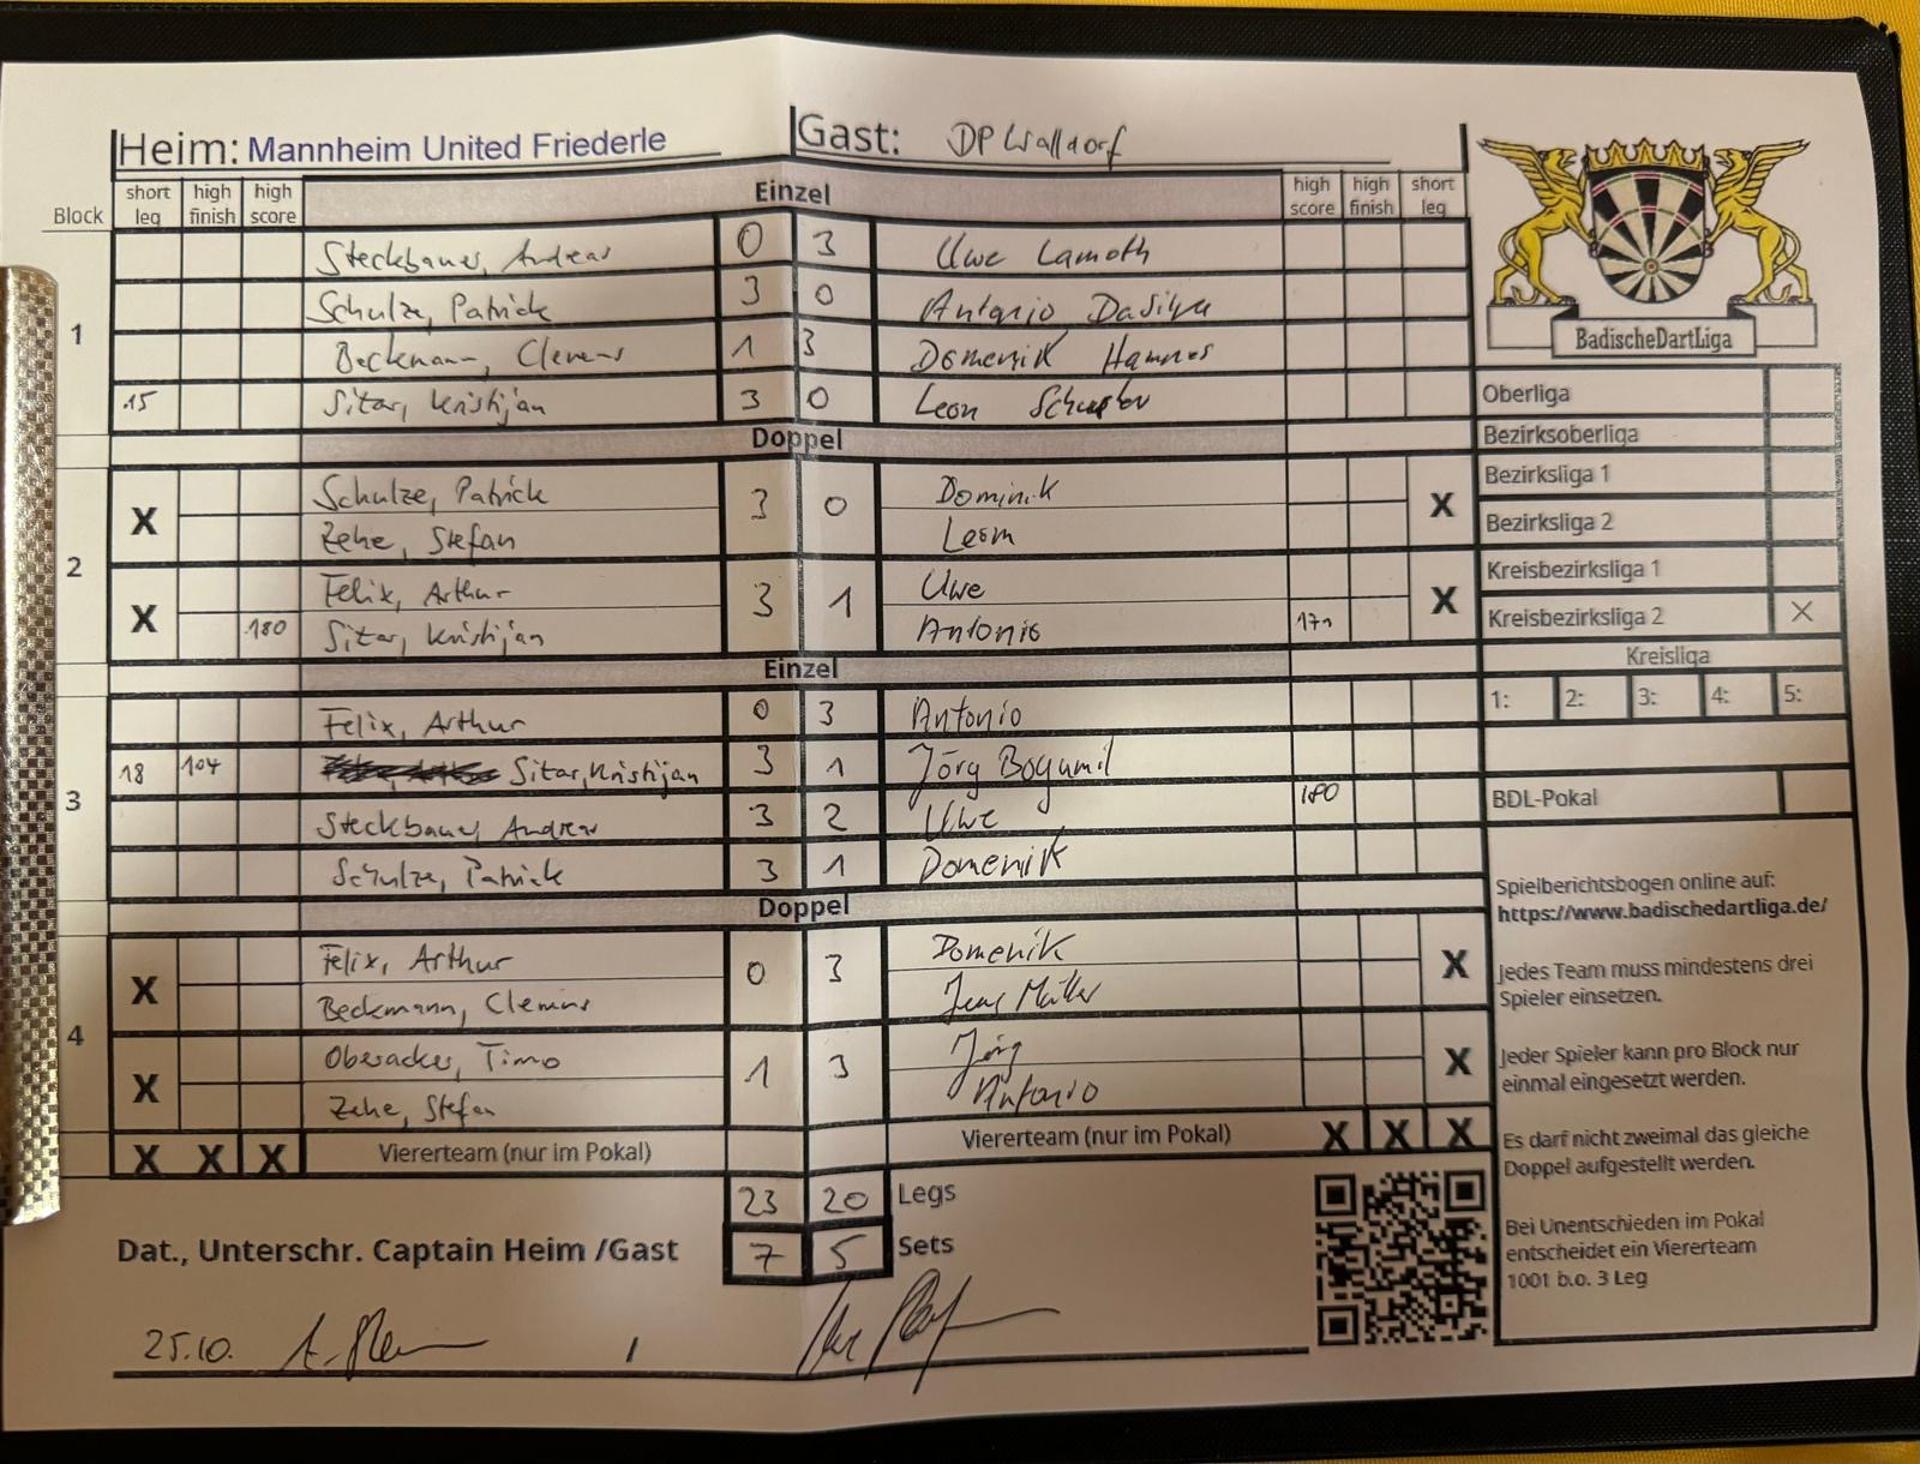 Heim: Mannheim United Friederle Gast: DP Walldorf
Block short leg high finish high score Einzel high score high finish short leg
1
Steckbauer, Andreas 0 3 Uwe Lamoth
Schulze, Patrick 3 0 Antonio DaSilva
Beckmann, Clemens 1 3 Domenik Hammes
15 Sitar, Kristijan 3 0 Leon Schuster
Doppel
2
X Schulze, Patrick 3 0 Dominik X
Zehe, Stefan Leon
X Felix, Arthur 3 1 Uwe X
180 Sitar, Kristijan Antonio 171
Einzel
3
Felix, Arthur 0 3 Antonio
18 104 Sitar, Kristijan 3 1 Jörg Bogumil
Steckbauer, Andreas 3 2 Uwe 180
Schulze, Patrick 3 1 Domenik
Doppel
4
X Felix, Arthur 0 3 Domenik X
Beckmann, Clemens Jens Müller
X Oberacker, Timo 1 3 Jörg X
Zehe, Stefan Antonio
X X X Viererteam (nur im Pokal) Viererteam (nur im Pokal) X X X
23 20 Legs
7 5 Sets
Dat., Unterschr. Captain Heim /Gast
25.10. /
BadischeDartLiga
Oberliga
Bezirksoberliga
Bezirksliga 1
Bezirksliga 2
Kreisbezirksliga 1
Kreisbezirksliga 2 X
Kreisliga
1: 2: 3: 4: 5:
BDL-Pokal
Spielberichtsbogen online auf:
https://www.badischedartliga.de/
Jedes Team muss mindestens drei
Spieler einsetzen.
Jeder Spieler kann pro Block nur
einmal eingesetzt werden.
Es darf nicht zweimal das gleiche
Doppel aufgestellt werden.
Bei Unentschieden im Pokal
entscheidet ein Viererteam
1001 b.o. 3 Leg